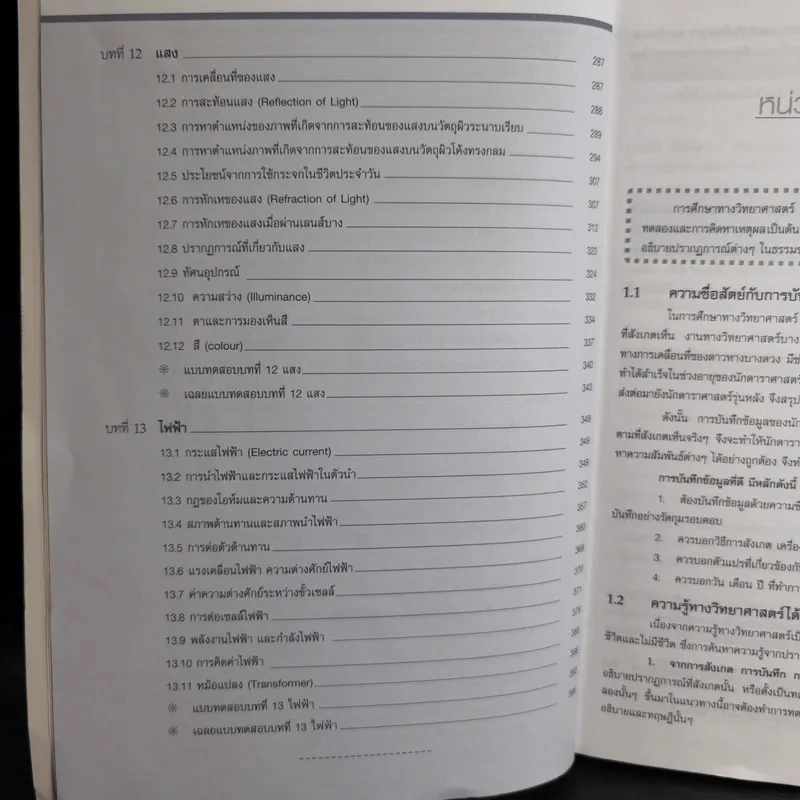 บทที่ 12 แสง 287
12.1 การเคลื่อนที่ของแสง 287
12.2 การสะท้อนแสง (Reflection of Light) 288
12.3 การหาตำแหน่งของภาพที่เกิดจากการสะท้อนของแสงบนวัตถุผิวระนาบเรียบ 289
12.4 การหาตำแหน่งภาพที่เกิดจากการสะท้อนของแสงบนวัตถุผิวโค้งทรงกลม 294
12.5 ประโยชน์จากการใช้กระจกในชีวิตประจำวัน 307
12.6 การหักเหของแสง (Refraction of Light) 307
12.7 การหักเหของแสงเมื่อผ่านเลนส์บาง 312
12.8 ปรากฏการณ์ที่เกี่ยวกับแสง 322
12.9 ทัศนอุปกรณ์ 324
12.10 ความสว่าง (Illuminance) 332
12.11 ตาและการมองเห็นสี 334
12.12 สี (colour) 337
❊ แบบทดสอบบทที่ 12 แสง 340
❊ เฉลยแบบทดสอบบทที่ 12 แสง 343
บทที่ 13 ไฟฟ้า 349
13.1 กระแสไฟฟ้า (Electric current) 349
13.2 การนำไฟฟ้าและกระแสไฟฟ้าในตัวนำ 349
13.3 กฎของโอห์มและความต้านทาน 352
13.4 สภาพต้านทานและสภาพนำไฟฟ้า 357
13.5 การต่อตัวต้านทาน 360
13.6 แรงเคลื่อนไฟฟ้า ความต่างศักย์ไฟฟ้า 368
13.7 ค่าความต่างศักย์ระหว่างขั้วเซลล์ 370
13.8 การต่อเซลล์ไฟฟ้า 371
13.9 พลังงานไฟฟ้า และกำลังไฟฟ้า
13.10 การคิดค่าไฟฟ้า
13.11 หม้อแปลง (Transformer)
❊ แบบทดสอบบทที่ 13 ไฟฟ้า
❊ เฉลยแบบทดสอบบทที่ 13 ไฟฟ้า
หน่ว
การศึกษาทางวิทยาศาสตร์
ทดลองและการคิดหาเหตุผลเป็นต้น
อธิบายปรากฏการณ์ต่างๆ ในธรรมร
1.1 ความซื่อสัตย์กับการบัน
ในการศึกษาทางวิทยาศาสตร์
ที่สังเกตเห็น งานทางวิทยาศาสตร์บาง
ทางการเคลื่อนที่ของดาวหางบางดวง มีช่
ทำได้สำเร็จในช่วงอายุของนักดาราศาสตร์
ส่งต่อมายังนักดาราศาสตร์รุ่นหลัง จึงสรุป
ดังนั้น การบันทึกข้อมูลของนัก
ตามที่สังเกตเห็นจริงๆ จึงจะทำให้นักดารา
หาความสัมพันธ์ต่างๆ ได้อย่างถูกต้อง จึงทำ
การบันทึกข้อมูลที่ดี มีหลักดังนี้
1. ต้องบันทึกข้อมูลด้วยความซื่
บันทึกอย่างรัดกุมรอบคอบ
2. ควรบอกวิธีการสังเกต เครื่อง
3. ควรบอกตัวแปรที่เกี่ยวข้องกับ
4. ควรบอกวัน เดือน ปี ที่ทำกา
1.2 ความรู้ทางวิทยาศาสตร์ได้
เนื่องจากความรู้ทางวิทยาศาสตร์เป็
ชีวิตและไม่มีชีวิต ซึ่งการค้นหาความรู้จากปรา
1. จากการสังเกต การบันทึก ก
อธิบายปรากฏการณ์ที่สังเกตนั้น หรือตั้งเป็นทฤ
ลองนั้นๆ ขึ้นมาในแนวทางนี้อาจต้องทำการทด
อธิบายและทฤษฎีนั้นๆ